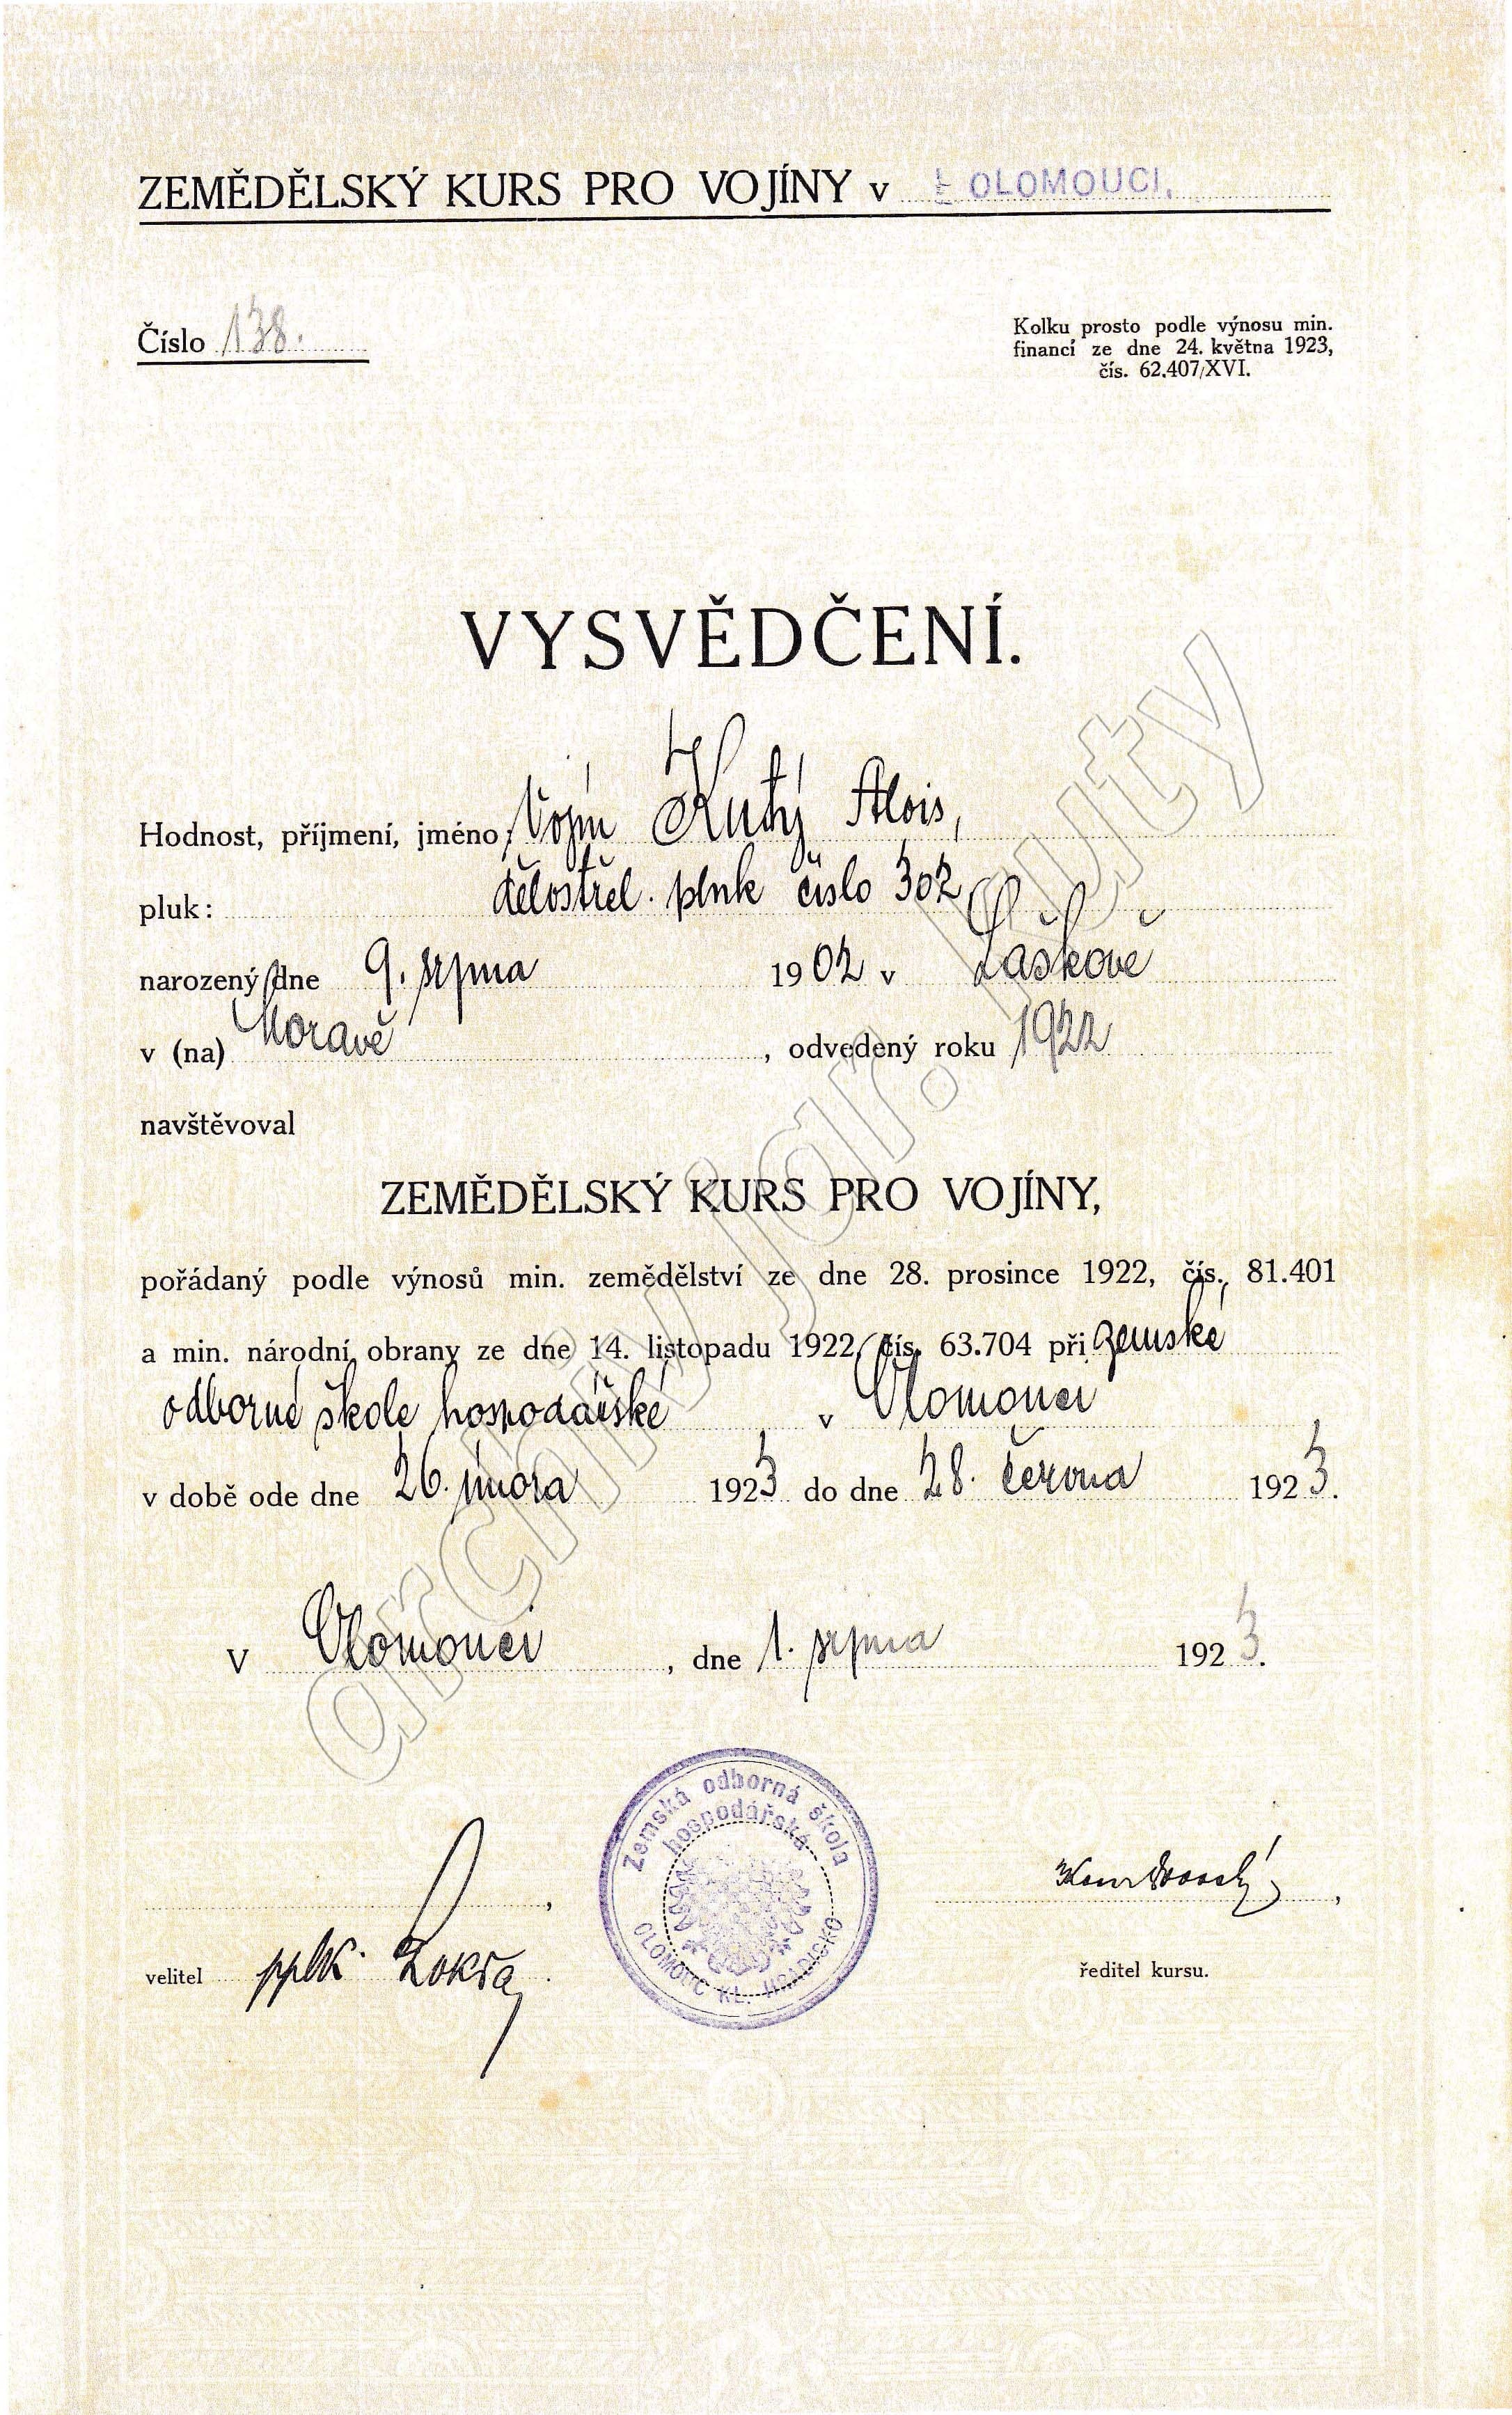 ZEMĚDĚLSKÝ KURS PRO VOJÍNY v OLOMOUCI.
Číslo 138.
Kolku prosto podle výnosu min.
financí ze dne 24. května 1923,
čís. 62.407/XVI.
VYSVĚDČENÍ.
Hodnost, příjmení, jméno, Vojín Kutý Alois,
pluk: dělostřel. pluk číslo 302
narozený dne 9. srpna 1902 v Laškově
v (na) Moravě, odvedený roku 1922
navštěvoval
ZEMĚDĚLSKÝ KURS PRO VOJÍNY,
pořádaný podle výnosů min. zemědělství ze dne 28. prosince 1922, čís. 81.401
a min. národní obrany ze dne 14. listopadu 1922, čís. 63.704 při zemské
odborné škole hospodářské v Olomouci
v době ode dne 26. února 1923 do dne 28. června 1923.
V Olomouci, dne 1. srpna 1923.
Zemská odborná škola
hospodářská
OLOMOUC KL. HRADISKO
velitel pplk.
ředitel kursu.
archiv jar. kuty